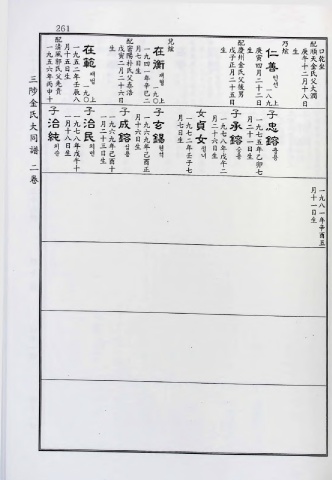 261
三陟金氏大同譜 二卷
口乾坐
配順天金氏父大潤
庚午十二月十八日
生
乃鉉
仁善 인선 一八上
庚寅四月二十二日
生
配慶州金氏父援男
戊子正月二十五日
生
兄鉉
在衡 재형 一九〇
一九四一年辛巳二
月七日生
配密陽朴氏父泰浩
戊寅二月二十六日
生
在範 재범 一九〇上
一九五二年壬辰八
月十五日生
配清風郭氏父先貴
一九五六年丙申十
子忠鎔 충용
一九七五年乙卯七
月二十二日生
子承鎔 승용
一九七八年戊午二
月二十六日生
女貞女 정녀
一九七二年壬子七
月七日生
子玄錫 현석
一九六九年己酉正
月十六日生
子成鎔 성용
一九六九年己酉十
月十三日生
子治民 치민
一九七八年戊午十
一月十八日生
子治純 치순
一九八一年辛酉五
月十一日生